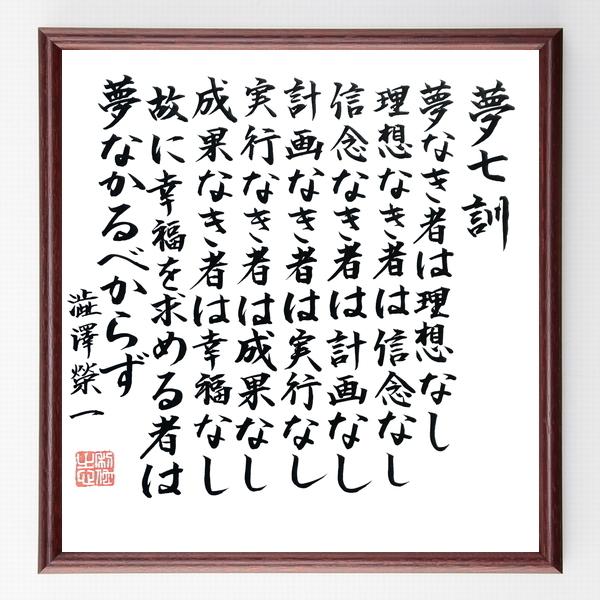 夢七訓
夢なき者は理想なし
理想なき者は信念なし
信念なき者は計画なし
計画なき者は実行なし
実行なき者は成果なし
成果なき者は幸福なし
故に幸福を求める者は
夢なかるべからず
澁澤榮一